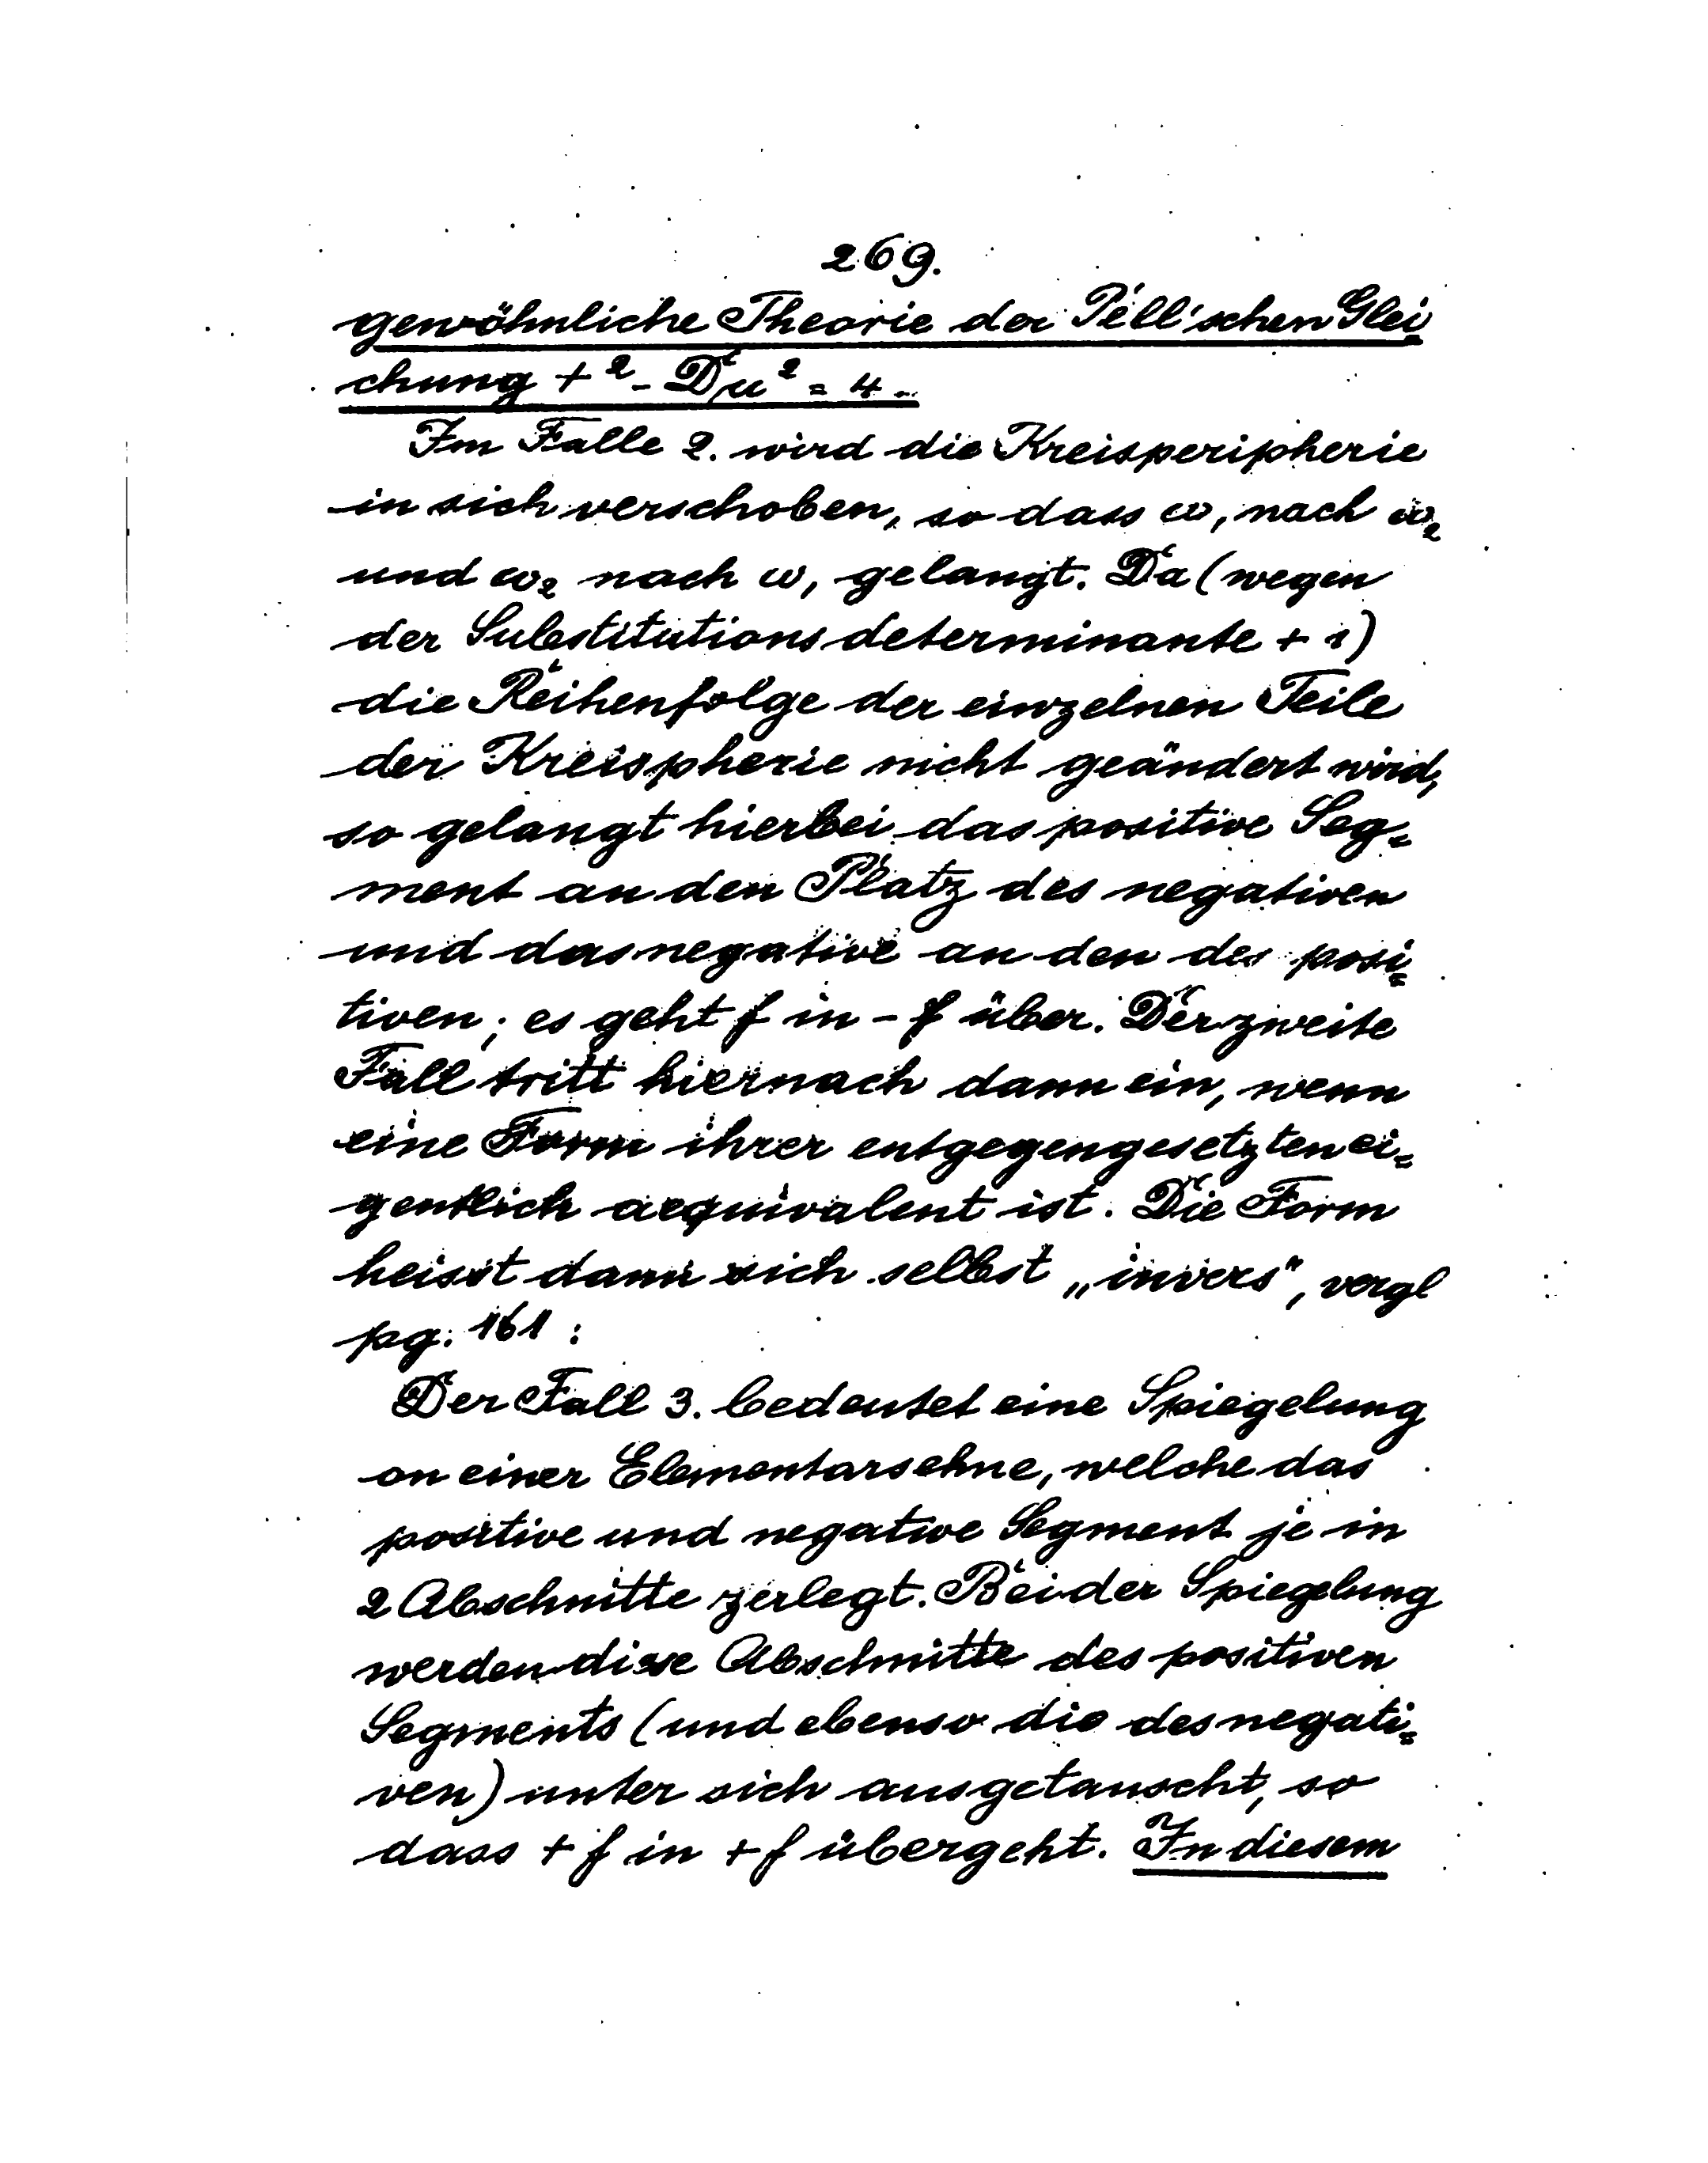 269.
gewöhnliche Theorie der Pell'schen Glei
chung t² - Du² = 4.
Im Falle 2. wird die Kreisperipherie
in sich verschoben, so dass ω, nach ω₂
und ω₂ nach ω, gelangt. Da (wegen
der Substitutionsdeterminante + 1)
die Reihenfolge der einzelnen Teile
der Kreispherie nicht geändert wird,
so gelangt hierbei das positive Seg=
ment an den Platz des negativen
und das negative an den des posi=
tiven; es geht f in - f über. Der zweite
Fall tritt hiernach dann ein, wenn
eine Form ihrer entgegengesetzten ei=
gentlich aequivalent ist. Die Form
heisst dann sich selbst „invers", vergl
pg. 161:
Der Fall 3. bedeutet eine Spiegelung
an einer Elementarsehne, welche das
positive und negative Segment je in
2 Abschnitte zerlegt. Bei der Spiegelung
werden diese Abschnitte des positiven
Segments (und ebenso die des negati=
ven) unter sich ausgetauscht, so
dass + f in + f übergeht. In diesem